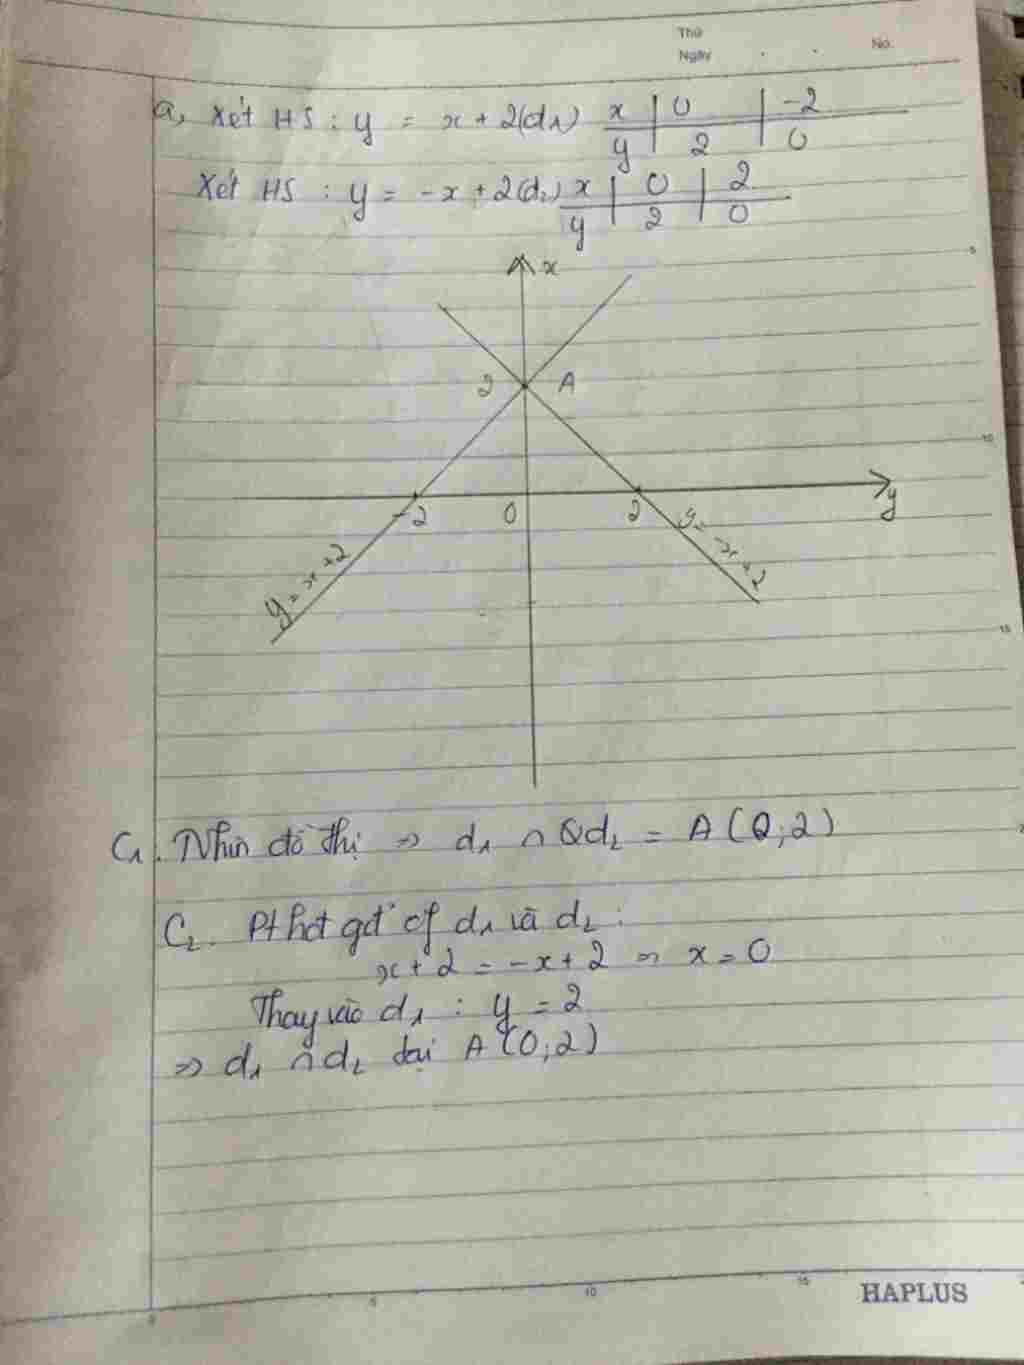 Thứ
Ngày
No.
a, Xét HS : y = x + 2 (d1) x 0 -2
y 2 0
Xét HS : y = -x + 2 (d2) x 0 2
y 2 0
x
2 A
-2 0 2 y
y = x + 2
y = -x + 2
5
10
15
C1. Nhìn đồ thị => d1 ∩ d2 = A (0;2)
C2. Pt hđ gđ of d1 và d2 :
x + 2 = -x + 2 => x = 0
Thay vào d1 : y = 2
=> d1 ∩ d2 tại A (0;2)
0 5 10 15
HAPLUS